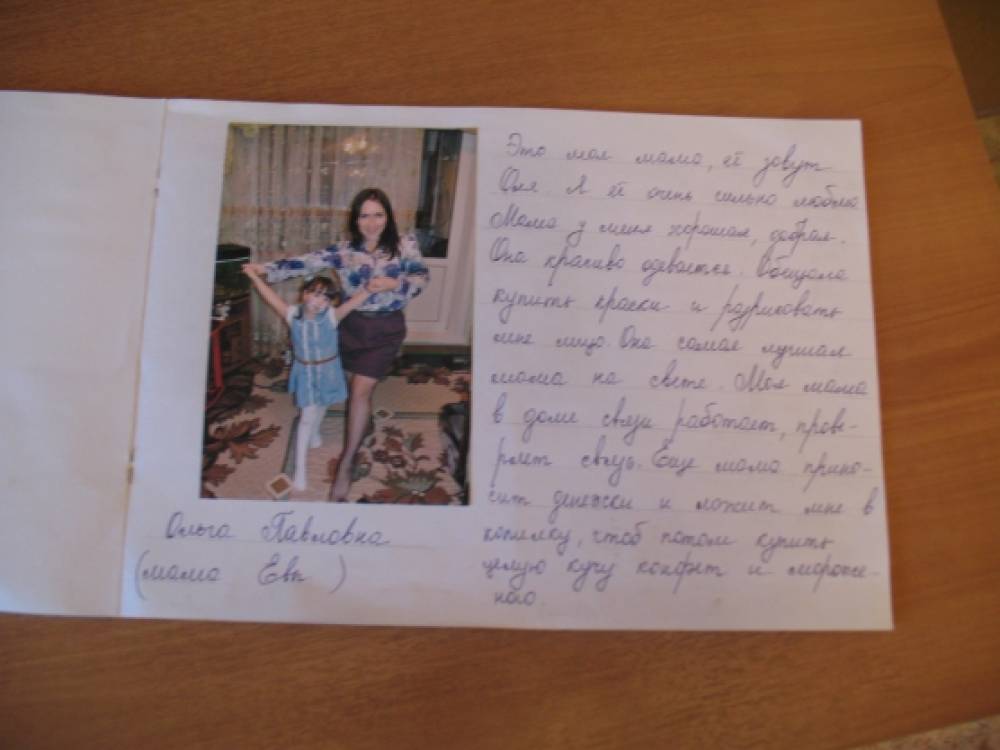 Ольга Павловна
(мама Евы)
Это моя мама, её зовут
Оля. Я её очень сильно люблю
Мама у меня хорошая, добрая.
Она красиво одевается. Обещала
купить краски и разрисовать
мне лицо. Она самая лучшая
мама на свете. Моя мама
в доме связи работает, прове-
ряет связь. Еще мама прино-
сит денежки и ложит мне в
копилку, чтоб потом купить
целую кучу конфет и мороже-
ного.